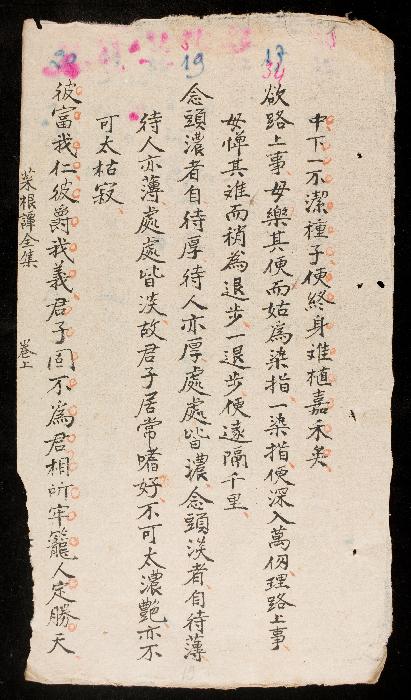 34
中下一不潔種子便終身难植嘉禾矣
欲路上事毋樂其便而姑為染指一染指便深入萬仞理路上事
毋憚其难而稍為退步一退步便遠隔千里
19
念頭濃者自待厚待人亦厚處處皆濃念頭淡者自待薄
待人亦薄處處皆淡故君子居常嗜好不可太濃艷亦不
可太枯寂
彼富我仁彼爵我義君子固不為君相所牢籠人定勝天
菜根譚全集 卷上